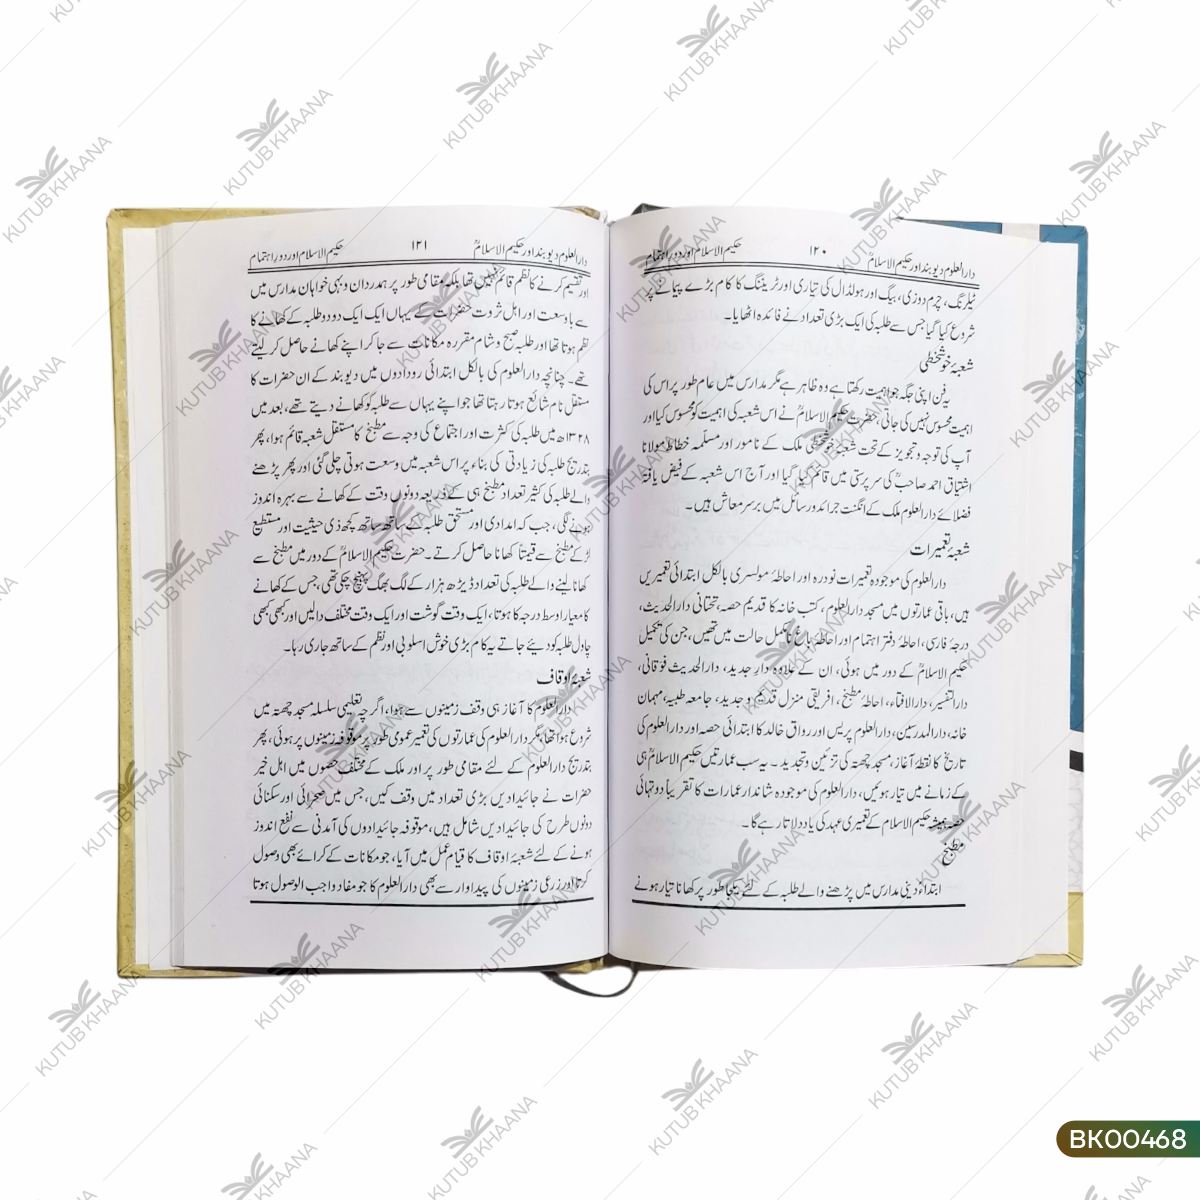 دارالعلوم دیوبند اور حکیم الاسلامؒ ۱۲۰ حکیم الاسلام اور دورِ اہتمام
ٹیلرنگ، چرم دوزی، بیگ اور ہولڈال کی تیاری اور ٹریننگ کا کام بڑے پیمانے پر
شروع کیا گیا جس سے طلبہ کی ایک بڑی تعداد نے فائدہ اٹھایا۔
شعبۂ خوشخطی
یہ فن اپنی جگہ جو اہمیت رکھتا ہے وہ ظاہر ہے مگر مدارس میں عام طور پر اس کی
اہمیت محسوس نہیں کی جاتی، حضرت حکیم الاسلامؒ نے اس شعبہ کی اہمیت کو محسوس کیا اور
آپ کی توجہ و تجویز کے تحت شعبۂ خوشخطی ملک کے نامور اور مسلمہ خطاط مولانا
اشتیاق احمد صاحبؒ کی سرپرستی میں قائم کیا گیا اور آج اس شعبہ کے فیض یافتہ
فضلائے دارالعلوم ملک کے انگنت جرائد و رسائل میں برسر معاش ہیں۔
شعبۂ تعمیرات
دارالعلوم کی موجودہ تعمیرات نودرہ اور احاطۂ مولسری بالکل ابتدائی تعمیریں
ہیں، باقی عمارتوں میں مسجد دارالعلوم، کتب خانہ کا قدیم حصہ، تحتانی دارالحدیث،
درجۂ فارسی، احاطۂ دفتر اہتمام اور احاطۂ باغ نامکمل حالت میں تھیں، جن کی تکمیل
حکیم الاسلامؒ کے دور میں ہوئی، ان کے علاوہ دارِ جدید، دارالحدیث فوقانی،
دارالتفسیر، دارالافتاء، احاطۂ مطبخ، افریقی منزل قدیم و جدید، جامعہ طبیہ، مہمان
خانہ، دارالمدرسین، دارالعلوم پریس اور رواق خالد کا ابتدائی حصہ اور دارالعلوم کی
تاریخ کا نقطۂ آغاز، مسجد چھتہ کی تزئین و تجدید۔ یہ سب عمارتیں حکیم الاسلامؒ ہی
کے زمانے میں تیار ہوئیں، دارالعلوم کی موجودہ شاندار عمارات کا تقریباً دو تہائی
حصہ ہمیشہ حکیم الاسلام کے تعمیری عہد کی یاد دلاتا رہے گا۔
مطبخ
ابتداءً دینی مدارس میں پڑھنے والے طلبہ کے لئے یکجا طور پر کھانا تیار ہونے
دارالعلوم دیوبند اور حکیم الاسلامؒ ۱۲۱ حکیم الاسلام اور دورِ اہتمام
اور تقسیم کرنے کا نظم قائم نہیں تھا بلکہ مقامی طور پر ہمدردان و بہی خواہان مدارس میں
سے باوسعت اور اہل ثروت حضرات کے یہاں ایک ایک دو دو طلبہ کے کھانے کا
نظم ہوتا تھا اور طلبہ صبح و شام مقررہ مکانات سے جا کر اپنے کھانے حاصل کر لیتے
تھے۔ چنانچہ دارالعلوم کی بالکل ابتدائی رودادوں میں دیوبند کے ان حضرات کا
مستقل نام شائع ہوتا رہتا تھا جو اپنے یہاں سے طلبہ کو کھانے دیتے تھے، بعد میں
۱۳۲۸ھ میں طلبہ کی کثرت اور اجتماع کی وجہ سے مطبخ کا مستقل شعبہ قائم ہوا، پھر
بتدریج طلبہ کی زیادتی کی بناء پر اس شعبہ میں وسعت ہوتی چلی گئی اور پھر پڑھنے
والے طلبہ کی کثیر تعداد مطبخ ہی کے ذریعہ دونوں وقت کے کھانے سے بہرہ اندوز
ہونے لگی، جب کہ امدادی اور مستحق طلبہ کے ساتھ ساتھ کچھ ذی حیثیت اور مستطیع
لڑکے مطبخ سے قیمتاً کھانا حاصل کرتے۔ حضرت حکیم الاسلامؒ کے دور میں مطبخ سے
کھانا لینے والے طلبہ کی تعداد ڈیڑھ ہزار کے لگ بھگ پہنچ چکی تھی، جس کے کھانے
کا معیار اوسط درجہ کا ہوتا، ایک وقت گوشت اور ایک وقت مختلف دالیں اور کبھی کبھی
چاول طلبہ کو دیئے جاتے یہ کام بڑی خوش اسلوبی اور نظم کے ساتھ جاری رہا۔
شعبۂ اوقاف
دارالعلوم کا آغاز ہی وقف زمینوں سے ہوا، اگرچہ تعلیمی سلسلہ مسجد چھتہ میں
شروع ہوا تھا، مگر دارالعلوم کی عمارتوں کی تعمیر عمومی طور پر موقوفہ زمینوں پر ہوئی، پھر
بتدریج دارالعلوم کے لئے مقامی طور پر اور ملک کے مختلف حصوں میں اہل خیر
حضرات نے جائیدادیں بڑی تعداد میں وقف کیں، جس میں صحرائی اور سکنائی
دونوں طرح کی جائیدادیں شامل ہیں، موقوفہ جائیدادوں کی آمدنی سے نفع اندوز
ہونے کے لئے شعبۂ اوقاف کا قیام عمل میں آیا، جو مکانات کے کرائے بھی وصول
کرتا اور زرعی زمینوں کی پیداوار سے بھی دارالعلوم کا جو مفاد واجب الوصول ہوتا
KUTUB KHAANA
BK00468